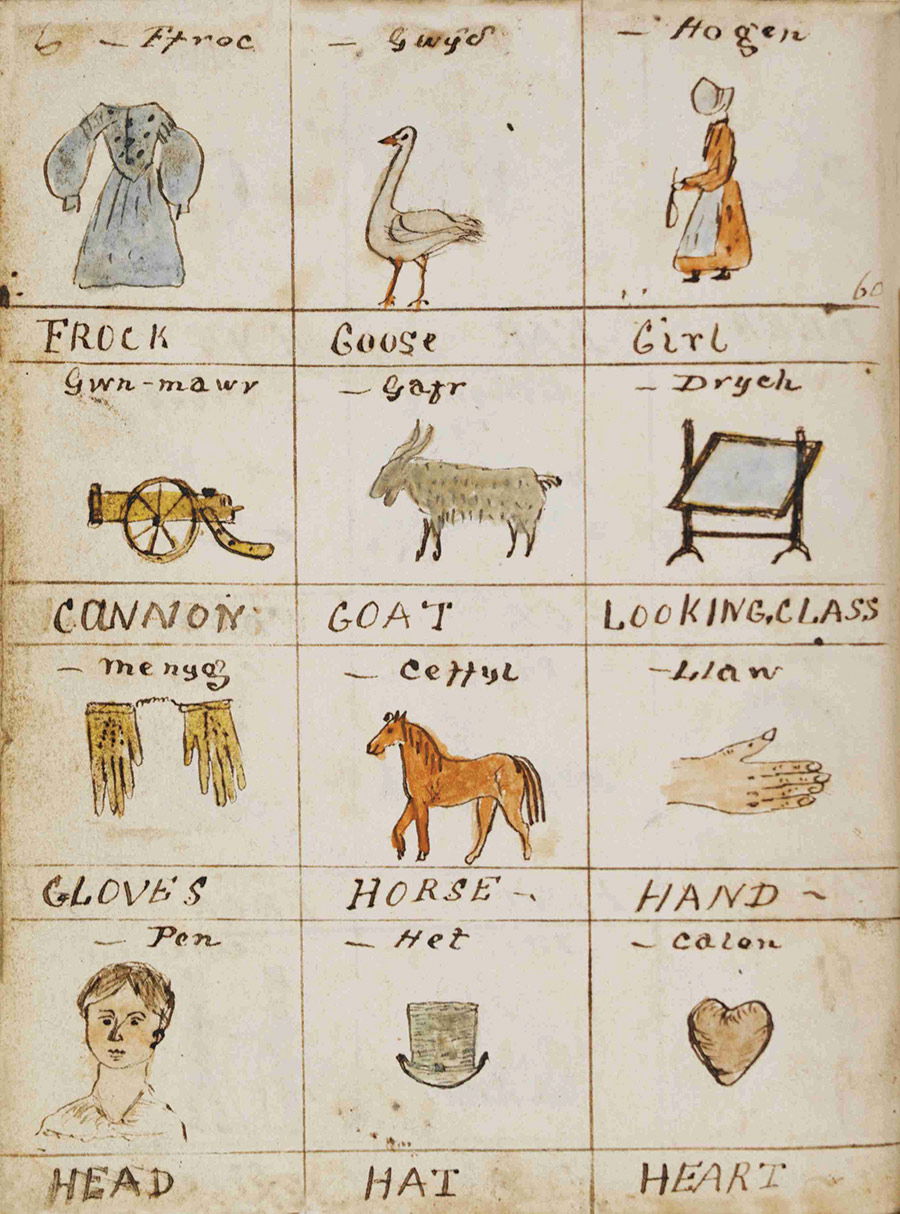 6 – Ffroc – Gwydd – Hogen
60
FROCK Goose Girl
Gwn-mawr – Gafr – Drych
CANNON GOAT LOOKING.CLASS
– menyg – Ceffyl – Llaw
GLOVES HORSE HAND
– Pen – Het – Calon
HEAD HAT HEART